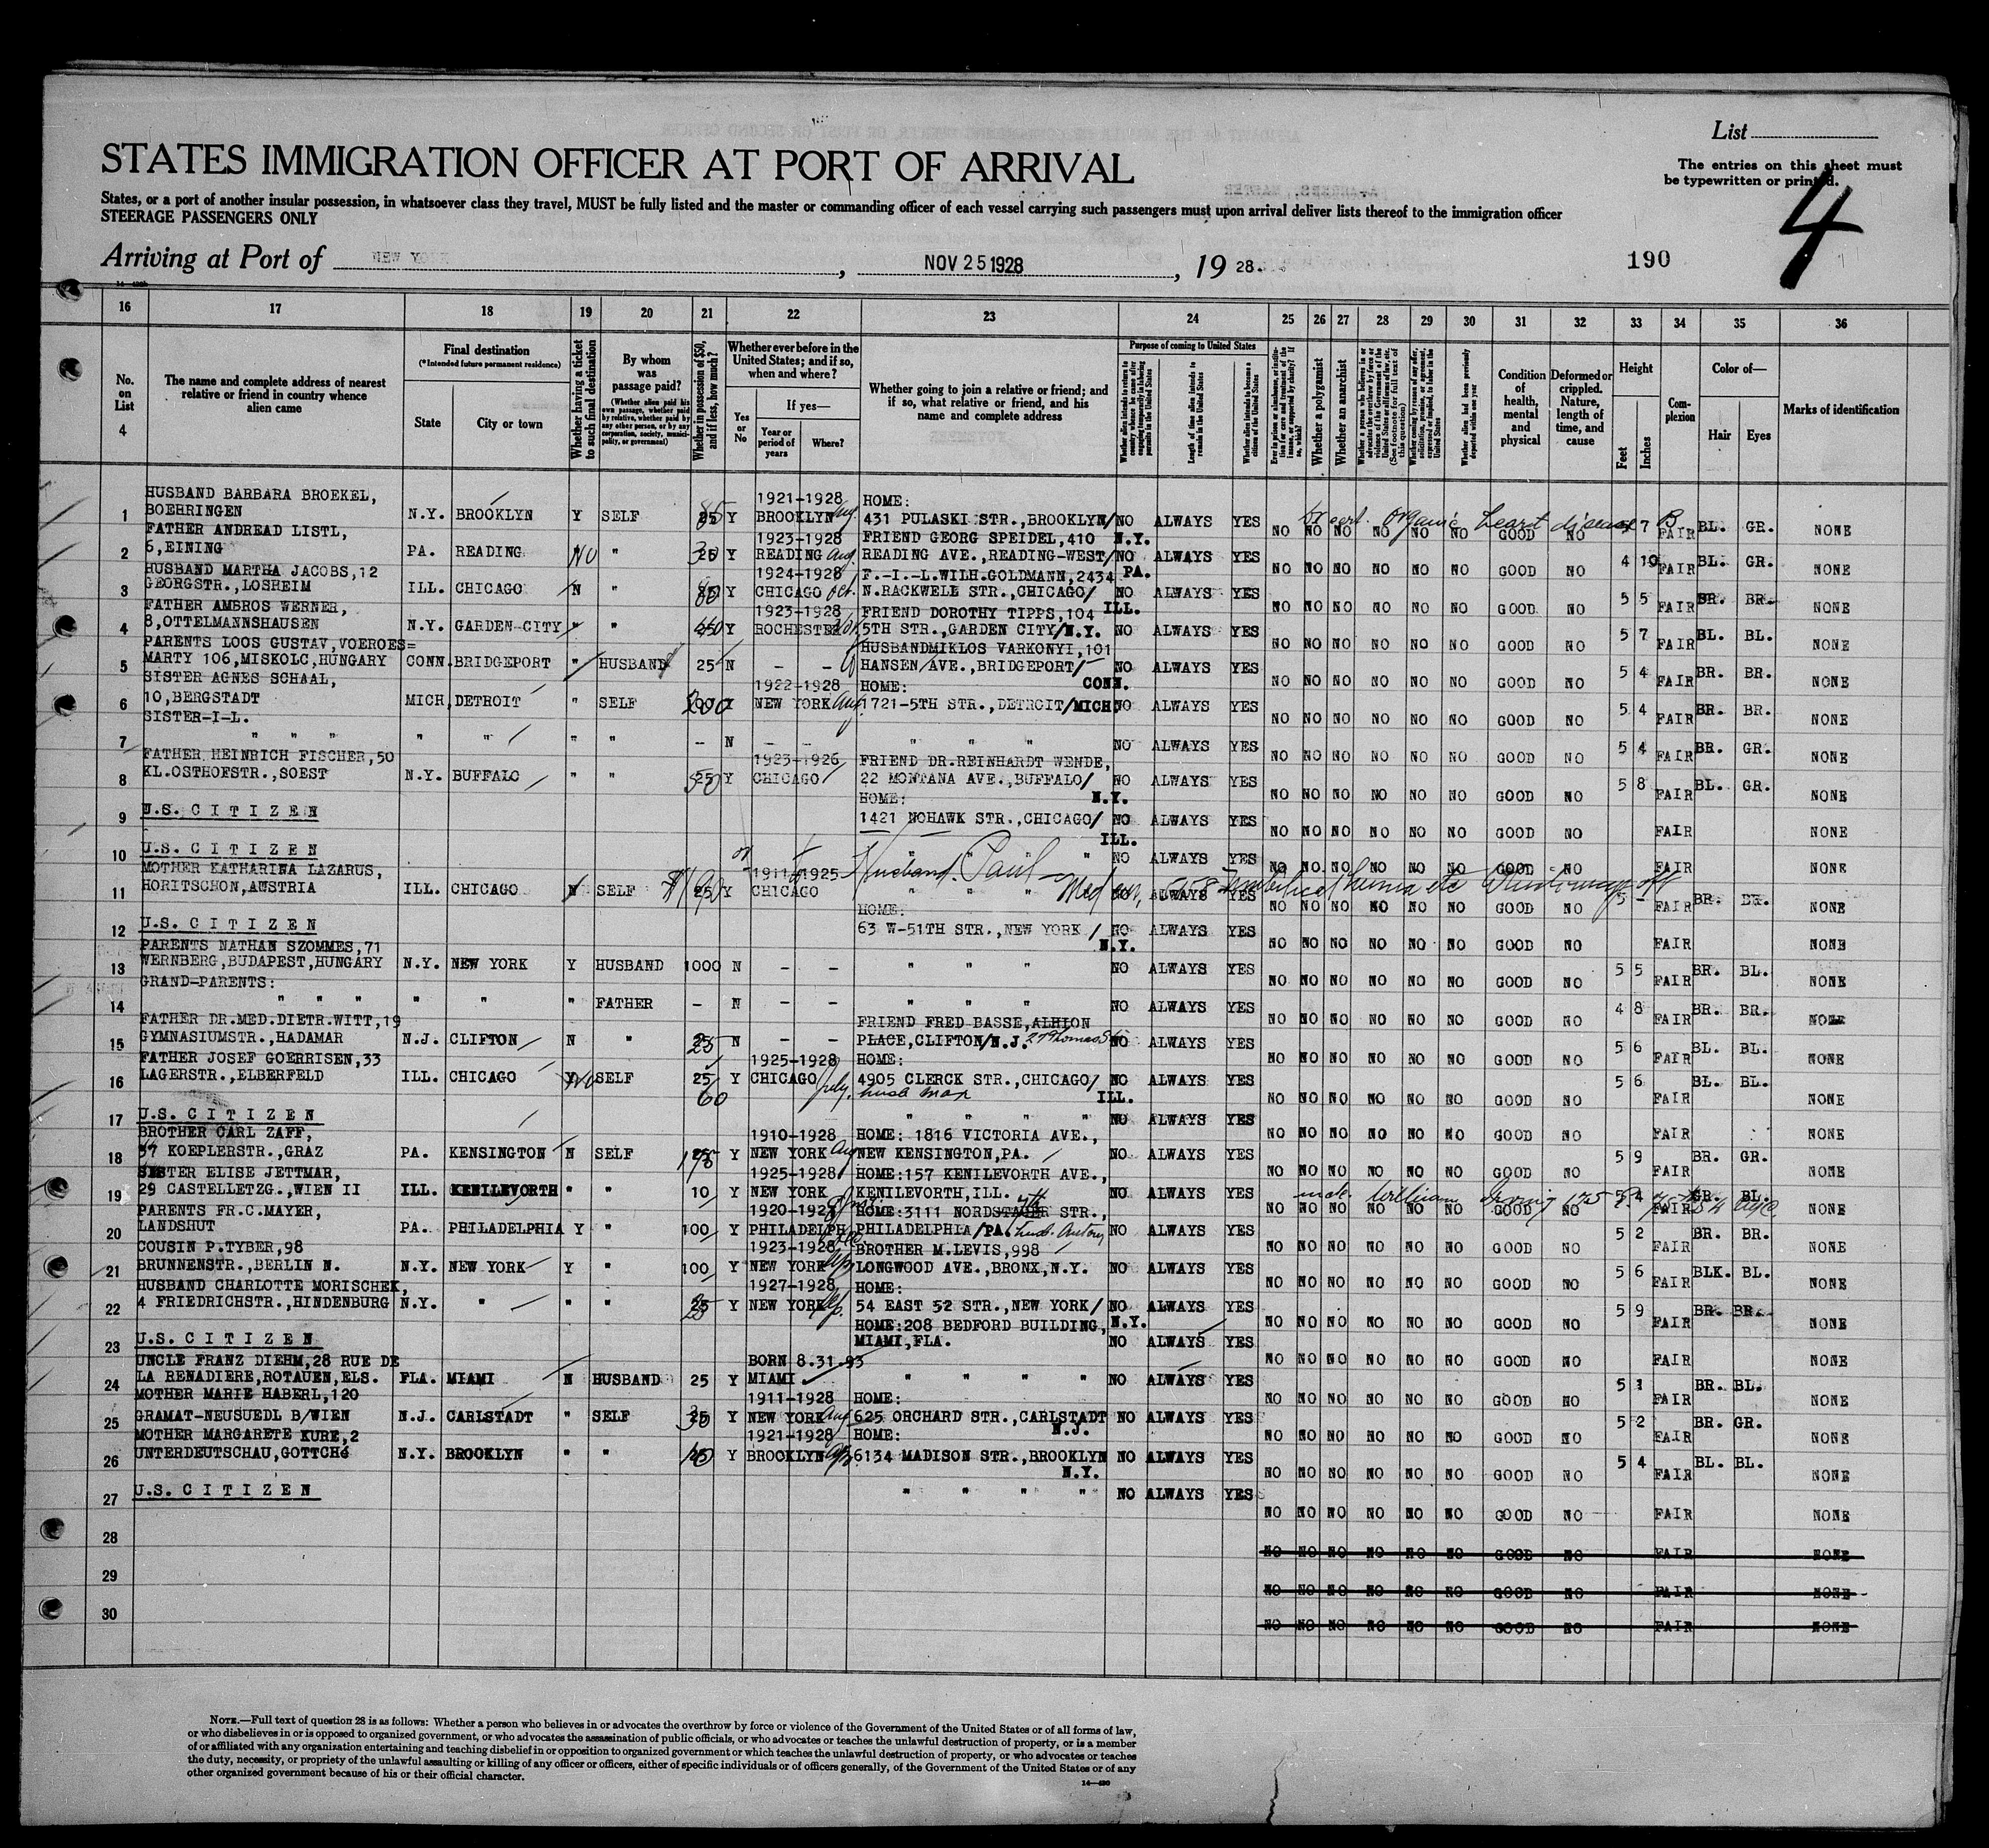 List
STATES IMMIGRATION OFFICER AT PORT OF ARRIVAL
The entries on this sheet must
be typewritten or printed.
4
States, or a port of another insular possession, in whatsoever class they travel, MUST be fully listed and the master or commanding officer of each vessel carrying such passengers must upon arrival deliver lists thereof to the immigration officer
STEERAGE PASSENGERS ONLY
Arriving at Port of NEW YORK, NOV 25 1928, 19 28.
190
16 17 18 19 20 21 22 23 24 25 26 27 28 29 30 31 32 33 34 35 36
No. on List
4
The name and complete address of nearest relative or friend in country whence alien came
Final destination
(*Intended future permanent residence)
State
City or town
Whether having a ticket to such final destination
By whom was passage paid?
(Whether alien paid his own passage, whether paid by relative, whether paid by any other person, or by any corporation, society, municipality, or government)
Whether in possession of $50, and if less, how much?
Whether ever before in the United States; and if so, when and where?
Yes or No
If yes—
Year or period of years
Where?
Whether going to join a relative or friend; and if so, what relative or friend, and his name and complete address
Purpose of coming to United States
Length of time alien intends to remain in the United States
Whether alien intends to become a citizen of the United States
Whether a polygamist
Whether an anarchist
(See footnote for full text of this question)
Whether alien had been previously deported within one year
Condition of health, mental and physical
Deformed or crippled. Nature, length of time, and cause
Height
Feet
Inches
Complexion
Color of—
Hair
Eyes
Marks of identification
HUSBAND BARBARA BROEKEL, 1921-1928 HOME:
1 BOEHRINGEN N.Y. BROOKLYN Y SELF Y BROOKLYN Aug. 431 PULASKI STR.,BROOKLYN/ N.Y. NO ALWAYS YES NO NO NO NO NO NO GOOD NO 7 FAIR BL. GR. NONE
organic heart disease B
FATHER ANDREAD LISTL, 1923-1928 FRIEND GEORG SPEIDEL,410
2 6,EINING PA. READING NO " Y READING Aug. READING AVE.,READING-WEST/ PA. NO ALWAYS YES NO NO NO NO NO NO GOOD NO 4 10 FAIR BL. GR. NONE
HUSBAND MARTHA JACOBS,12 1924-1928 F.-I.-L.WILH.GOLDMANN,2434
3 GEORGSTR.,LOSHEIM ILL. CHICAGO N " Y CHICAGO Oct. N.RACKWELL STR.,CHICAGO/ ILL. NO ALWAYS YES NO NO NO NO NO NO GOOD NO 5 5 FAIR BR. BR. NONE
FATHER AMBROS WERNER, 1923-1928 FRIEND DOROTHY TIPPS,104
4 8,OTTELMANNSHAUSEN N.Y. GARDEN-CITY " " Y ROCHESTER 5TH STR.,GARDEN CITY/N.Y. NO ALWAYS YES NO NO NO NO NO NO GOOD NO 5 7 FAIR BL. BL. NONE
PARENTS LOOS GUSTAV,VOEROES= HUSBANDMIKLOS VARKONYI,101
5 MARTY 106,MISKOLC,HUNGARY CONN. BRIDGEPORT " HUSBAND 25 N - - HANSEN AVE.,BRIDGEPORT/ CONN. NO ALWAYS YES NO NO NO NO NO NO GOOD NO 5 4 FAIR BR. BR. NONE
SISTER AGNES SCHAAL, 1922-1928 HOME:
6 10,BERGSTADT MICH. DETROIT " SELF 200 Y NEW YORK Aug. 1721-5TH STR.,DETROIT/MICH. NO ALWAYS YES NO NO NO NO NO NO GOOD NO 5 4 FAIR BR. BR. NONE
SISTER-I-L.
7 " " " " " " " - N - - " " " NO ALWAYS YES NO NO NO NO NO NO GOOD NO 5 4 FAIR BR. GR. NONE
FATHER HEINRICH FISCHER,50 1923-1926 FRIEND DR.REINHARDT WENDE,
8 KL.OSTHOFSTR.,SOEST N.Y. BUFFALO " " 50 Y CHICAGO 22 MONTANA AVE.,BUFFALO/ N.Y. NO ALWAYS YES NO NO NO NO NO NO GOOD NO 5 8 FAIR BL. GR. NONE
HOME:
9 U.S. CITIZEN 1421 NOHAWK STR.,CHICAGO/ ILL. NO ALWAYS YES NO NO NO NO NO NO GOOD NO FAIR NONE
10 U.S. CITIZEN " " NO ALWAYS YES NO NO NO NO NO NO GOOD NO FAIR NONE
Husband Paul
MOTHER KATHARINA LAZARUS, 1911-1925
11 HORITSCHON,AUSTRIA ILL. CHICAGO N SELF 25 Y CHICAGO " " " NO ALWAYS YES NO NO NO NO NO NO GOOD NO 5 - FAIR BR. BR. NONE
Umbilical hernia etc
HOME:
12 U.S. CITIZEN 63 W-51TH STR.,NEW YORK / N.Y. NO ALWAYS YES NO NO NO NO NO NO GOOD NO FAIR NONE
PARENTS NATHAN SZOMMES,71
13 WERNBERG,BUDAPEST,HUNGARY N.Y. NEW YORK Y HUSBAND 1000 N - - " " " NO ALWAYS YES NO NO NO NO NO NO GOOD NO 5 5 FAIR BR. BL. NONE
GRAND-PARENTS:
14 " " " " " " FATHER - N - - " " " NO ALWAYS YES NO NO NO NO NO NO GOOD NO 4 8 FAIR BR. BR. NONE
FATHER DR.MED.DIETR.WITT,19 FRIEND FRED BASSE,ALHION
15 GYMNASIUMSTR.,HADAMAR N.J. CLIFTON N " 25 N - - PLACE,CLIFTON/N.J. 29 Thomas St. NO ALWAYS YES NO NO NO NO NO NO GOOD NO 5 6 FAIR BL. BL. NONE
FATHER JOSEF GOERRISEN,33 1925-1928 HOME:
16 LAGERSTR.,ELBERFELD ILL. CHICAGO NO SELF 25 60 Y CHICAGO July. 4905 CLERCK STR.,CHICAGO/ ILL. NO ALWAYS YES NO NO NO NO NO NO GOOD NO 5 6 FAIR BL. BL. NONE
husb Max
17 U.S. CITIZEN " " " " NO ALWAYS YES NO NO NO NO NO NO GOOD NO FAIR NONE
BROTHER CARL ZAFF, 1910-1928 HOME: 1816 VICTORIA AVE.,
18 37 KOEPLERSTR.,GRAZ PA. KENSINGTON N SELF Y NEW YORK Aug NEW KENSINGTON,PA. NO ALWAYS YES NO NO NO NO NO NO GOOD NO 5 9 FAIR BR. GR. NONE
SISTER ELISE JETTMAR, 1925-1928 HOME:157 KENILEVORTH AVE.,
19 29 CASTELLETZG.,WIEN II ILL. KENILEVORTH " " 10 Y NEW YORK KENILEVORTH,ILL. NO ALWAYS YES NO NO NO NO NO NO GOOD NO 5 4 FAIR GR. BL. NONE
uncle William Irving 175 E. 75 St NYC
PARENTS FR.C.MAYER, 1920-1927 HOME:3111 NORDSTAUER STR.,
20 LANDSHUT PA. PHILADELPHIA Y " 100 Y PHILADELPH. PHILADELPHIA/PA. husb. Antony NO ALWAYS YES NO NO NO NO NO NO GOOD NO 5 2 FAIR BR. BR. NONE
COUSIN P.TYBER,98 1923-1928 BROTHER M.LEVIS,998
21 BRUNNENSTR.,BERLIN N. N.Y. NEW YORK Y " 100 Y NEW YORK LONGWOOD AVE.,BRONX,N.Y. NO ALWAYS YES NO NO NO NO NO NO GOOD NO 5 6 FAIR BLK. BL. NONE
HUSBAND CHARLOTTE MORISCHEK, 1927-1928 HOME:
22 4 FRIEDRICHSTR.,HINDENBURG N.Y. " " " 25 Y NEW YORK 54 EAST 52 STR.,NEW YORK/ N.Y. NO ALWAYS YES NO NO NO NO NO NO GOOD NO 5 9 FAIR BR. BR. NONE
HOME:208 BEDFORD BUILDING,
23 U.S. CITIZEN MIAMI,FLA. NO ALWAYS YES NO NO NO NO NO NO GOOD NO FAIR NONE
UNCLE FRANZ DIEHM,28 RUE DE BORN 8.31.93
24 LA RENADIERE,ROTAUEN,ELS. FLA. MIAMI N HUSBAND 25 Y MIAMI " " " " NO ALWAYS YES NO NO NO NO NO NO GOOD NO 5 1 FAIR BR. BL. NONE
MOTHER MARIE HABERL,120 1911-1928 HOME:
25 GRAMAT-NEUSUEDL B/WIEN N.J. CARLSTADT " SELF 30 Y NEW YORK Aug 625 ORCHARD STR.,CARLSTADT N.J. NO ALWAYS YES NO NO NO NO NO NO GOOD NO 5 2 FAIR BR. GR. NONE
MOTHER MARGARETE KURE,2 1921-1928 HOME:
26 UNTERDEUTSCHAU,GOTTCHé N.Y. BROOKLYN " " Y BROOKLYN 6134 MADISON STR.,BROOKLYN N.Y. NO ALWAYS YES NO NO NO NO NO NO GOOD NO 5 4 FAIR BL. BL. NONE
27 U.S. CITIZEN " " " " NO ALWAYS YES NO NO NO NO NO NO GOOD NO FAIR NONE
28 NO NO NO NO NO NO GOOD NO FAIR NONE
29 NO NO NO NO NO NO GOOD NO FAIR NONE
30 NO NO NO NO NO NO GOOD NO FAIR NONE
NOTE.—Full text of question 28 is as follows: Whether a person who believes in or advocates the overthrow by force or violence of the Government of the United States or of all forms of law,
or who disbelieves in or is opposed to organized government, or who advocates the assassination of public officials, or who advocates or teaches the unlawful destruction of property, or is a member
of or affiliated with any organization entertaining and teaching disbelief in or opposition to organized government or which teaches the unlawful destruction of property, or who advocates or teaches
the duty, necessity, or propriety of the unlawful assaulting or killing of any officer or officers, either of specific individuals or of officers generally, of the Government of the United States or of any
other organized government because of his or their official character.
14—430